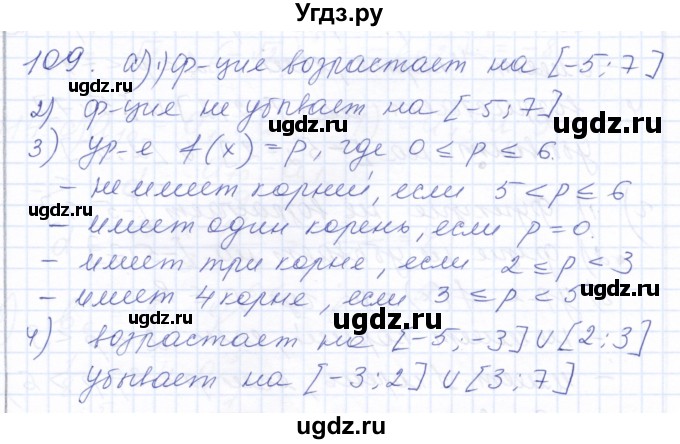 Угдз.ру
109. а) 1) ф-ция возрастает на [-5; 7]
2) ф-ция не убывает на [-5; 7]
3) ур-е f(x) = p, где 0 ≤ p ≤ 6.
- не имеет корней, если 5 < p ≤ 6
- имеет один корень, если p = 0.
- имеет три корня, если 2 ≤ p < 3
- имеет 4 корня, если 3 ≤ p < 5
4) возрастает на [-5; -3] ∪ [2; 3]
убывает на [-3; 2] ∪ [3; 7]
ugdz.ru
ugdz.ru
ugdz.ru
ugdz.ru
ugdz.ru
ugdz.ru
ugdz.ru
ugdz.ru